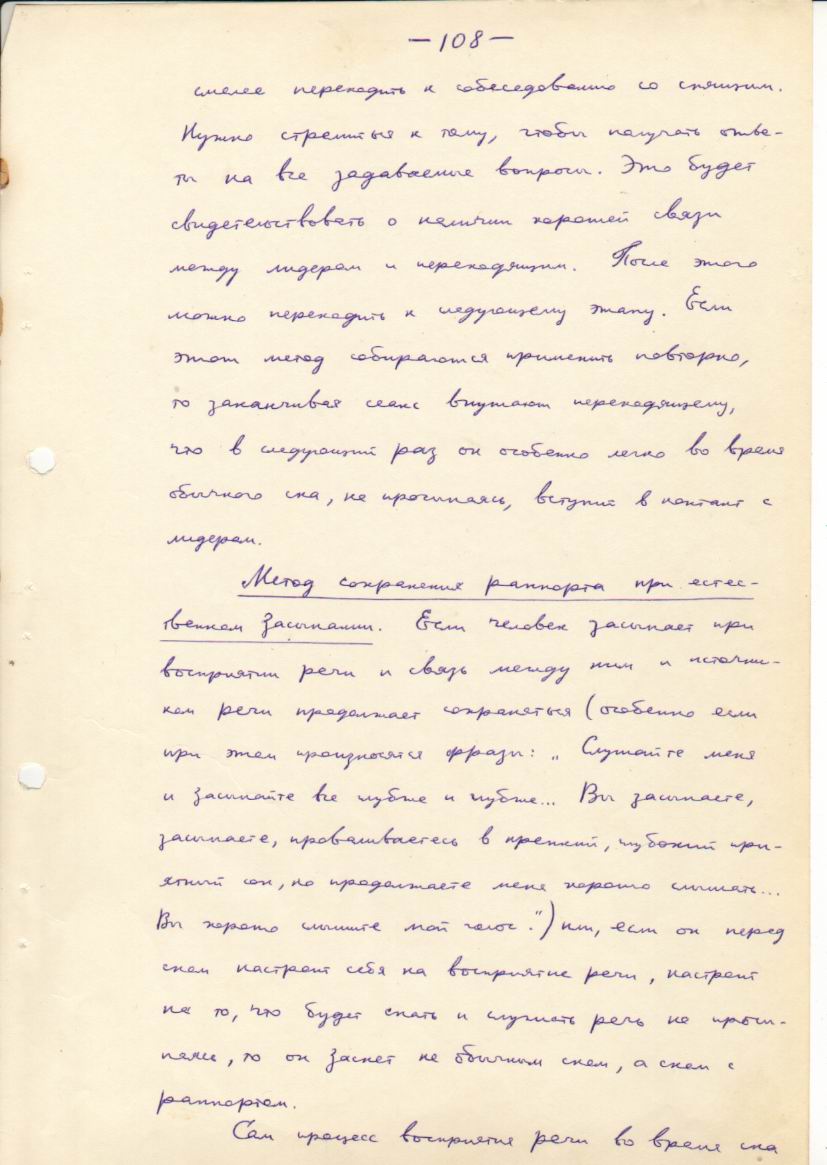 — 108 —
смелее переходить к собеседованию со спящим.
Нужно стремиться к тому, чтобы получать отве-
ты на все задаваемые вопросы. Это будет
свидетельствовать о наличии хорошей связи
между лидером и переходящим. После этого
можно переходить к следующему этапу. Если
этот метод собираются применить повторно,
то заканчивая сеанс внушают переходящему,
что в следующий раз он особенно легко во время
обычного сна, не просыпаясь, вступит в контакт с
лидером.
Метод сохранения раппорта при естес-
твенном засыпании. Если человек засыпает при
восприятии речи и связь между ним и источни-
ком речи продолжает сохраняться (особенно если
при этом произносятся фразы: „Слушайте меня
и засыпайте все глубже и глубже... Вы засыпаете,
засыпаете, проваливаетесь в крепкий, глубокий при-
ятный сон, но продолжаете меня хорошо слышать...
Вы хорошо слышите мой голос.") или, если он перед
сном настроит себя на восприятие речи, настроит
на то, что будет спать и слушать речь не просы-
паясь, то он заснет не обычным сном, а сном с
раппортом.
Сам процесс восприятия речи во время сна